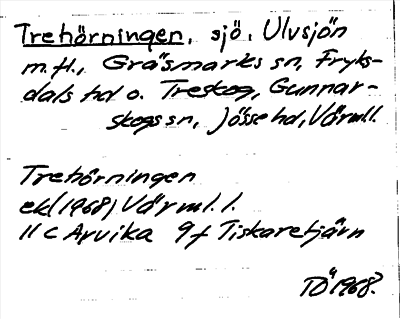 Trehörningen, sjö, Ulvsjön
m.fl., Gräsmarks sn, Fryks-
dals hd o. Treskog, Gunnar-
skogs sn, Jösse hd, Värml.
Trehörningen
ek (1968) Värml. l.
11 C Arvika 9f Tiskaretjärn
TÖ 1968.